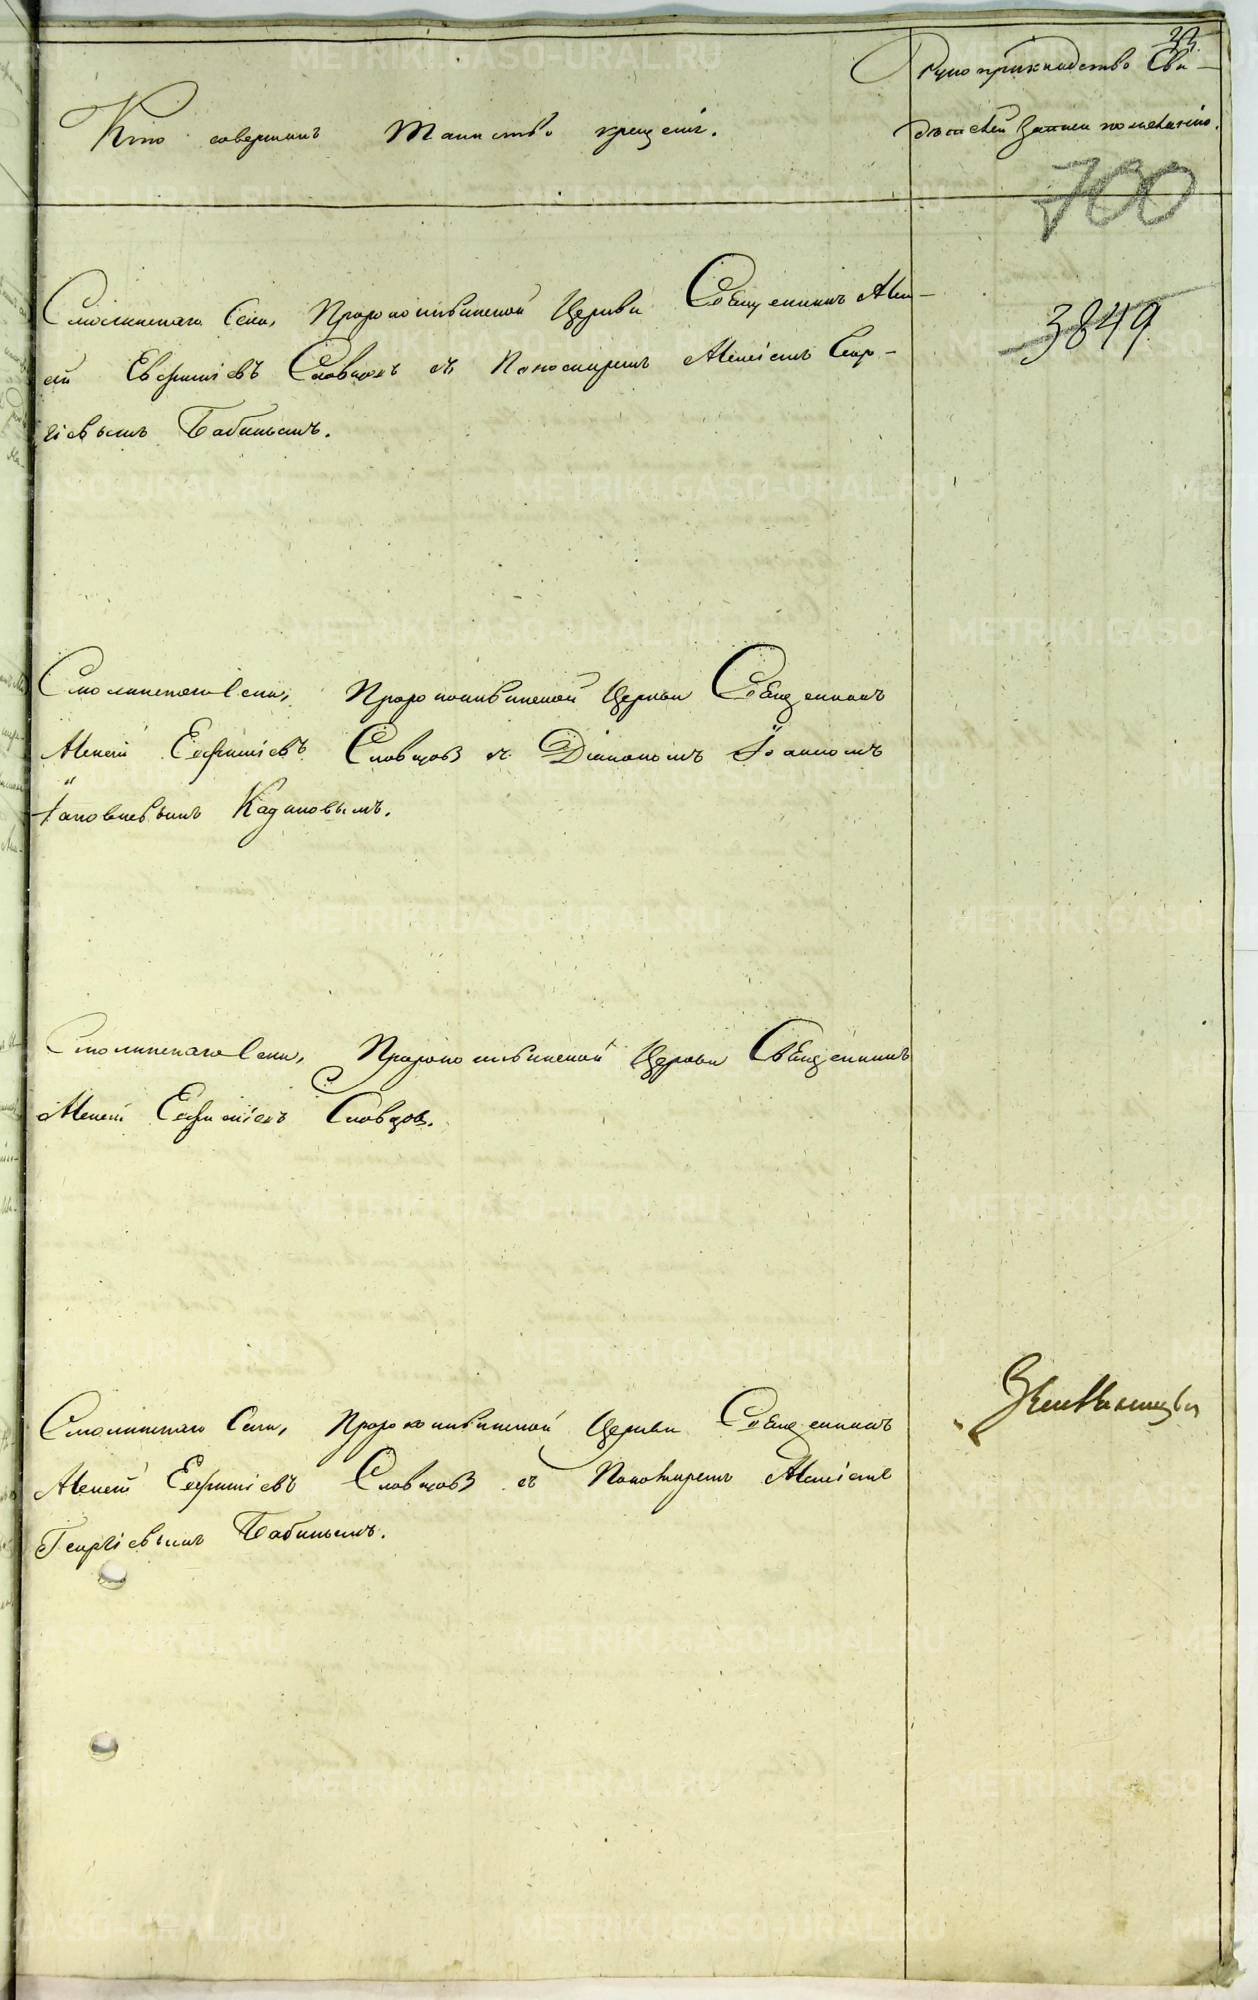 Кто совершилъ Таинство крещенія.
Рукоприкладство Сви-
дѣтелей записи по желанію.
700
3849
Смолинскаго Села, Пророкоильинской Церкви Священникъ Алек-
сій Евфиміевъ Словцовъ съ Пономаремъ Алексіемъ Геор-
гіевымъ Бабинымъ.
Смолинскаго Села, Пророкоильинской Церкви Священникъ
Алексій Евфиміевъ Словцовъ съ Діакономъ Іоанномъ
Іаковлевымъ Кадановымъ.
Смолинскаго Села, Пророкоильинской Церкви Священникъ
Алексій Евфиміевъ Словцов.
Смолинскаго Села, Пророкоильинской Церкви Священникъ
Алексій Евфиміевъ Словцовъ съ Пономаремъ Алексіемъ
Георгіевымъ Бабинымъ.
METRIKI.GASO-URAL.RU